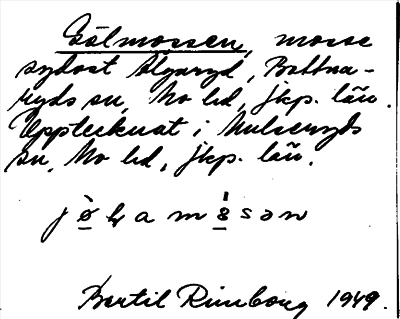 Gölmossen, mosse
sydost Älgaryd, Bottna-
ryds sn, Mo hd, jkp. län.
Upptecknat i Mulseryds
sn, Mo hd, jkp. län.
Bertil Rimborg 1949.